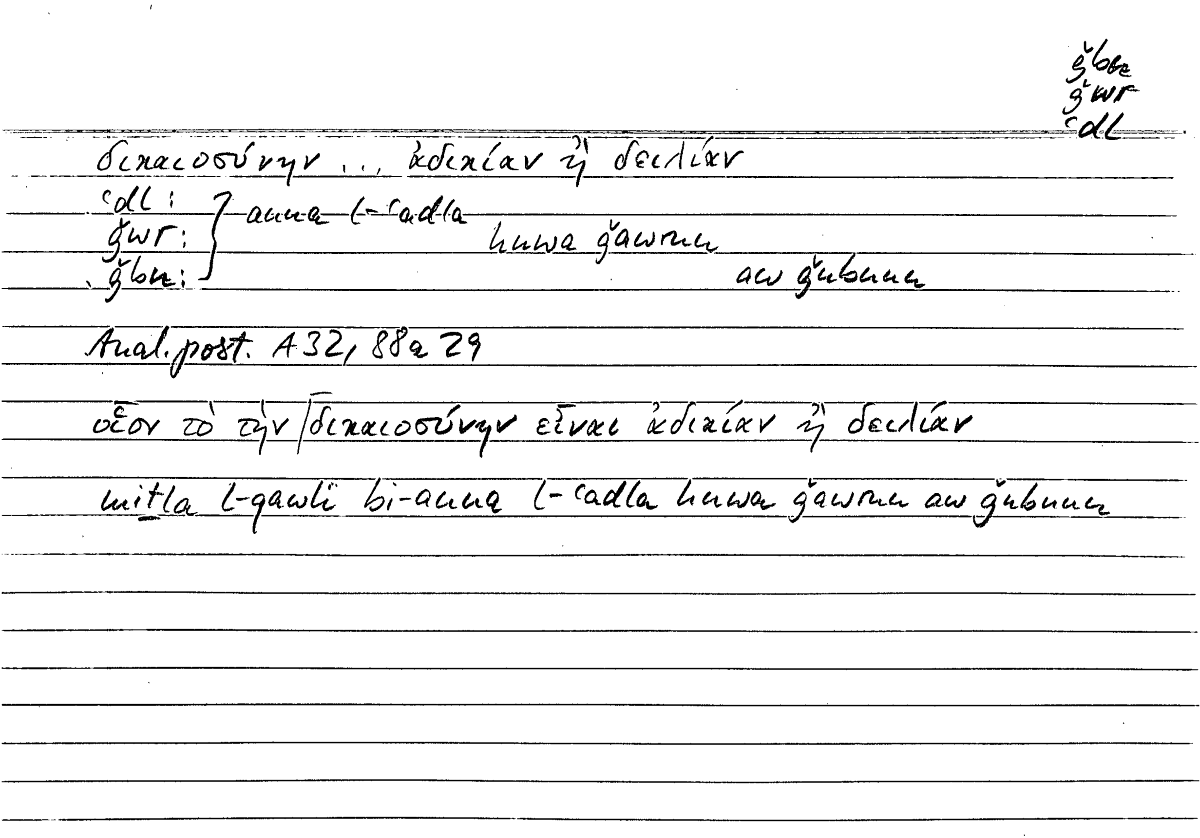 ǧbn
ǧwr
ʿdl
δικαιοσύνην ... ἀδικίαν ἢ δειλίαν
ʿdl: } anna l-ʿadla
ǧwr: huwa ǧawrun
ǧbn: aw ǧubunun
Anal. post. A 32, 88a 29
οἷον τὸ τὴν δικαιοσύνην εἶναι ἀδικίαν ἢ δειλίαν
miṯla l-qawli bi-anna l-ʿadla huwa ǧawrun aw ǧubunun